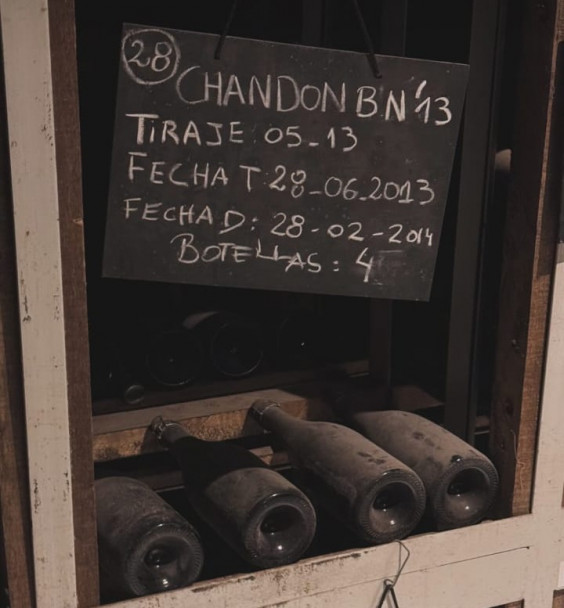 28
CHANDON B.N '13
TIRAJE: 05-13
FECHA T: 28-06-2013
FECHA D: 28-02-2014
BOTELLAS: 4